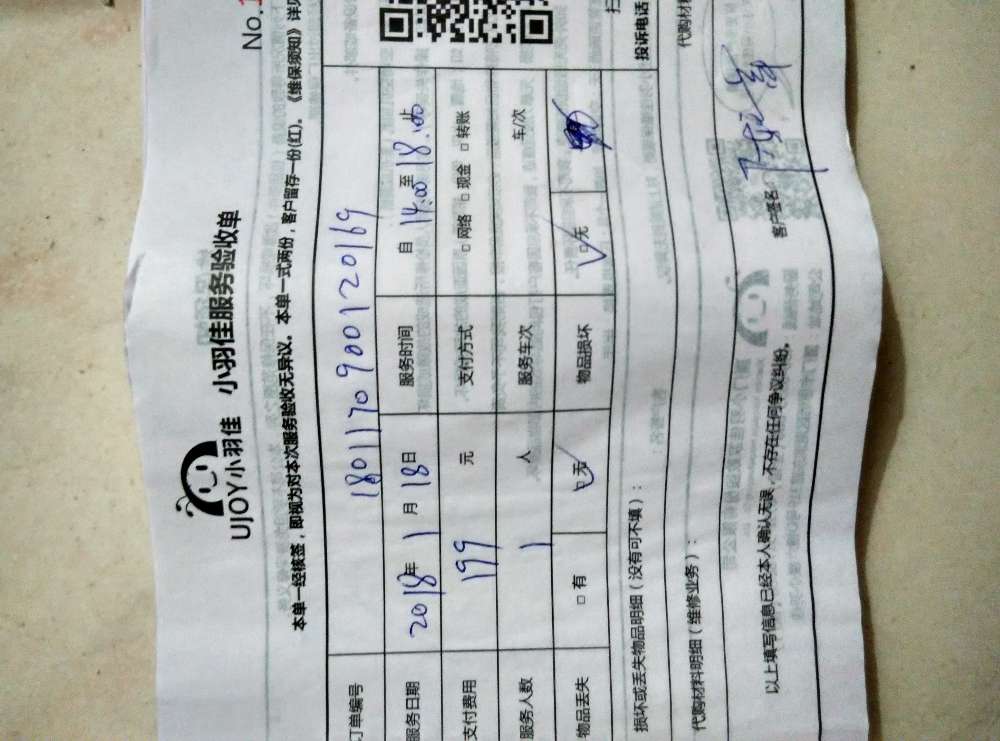 No.1
UJOY小羽佳 小羽佳服务验收单
本单一经核签，即视为对本次服务验收无异议。本单一式两份，客户留存一份(红)。《维保须知》详见
订单编号 180117090012020169
服务日期 2018年 1月 18日 服务时间 自 14:00 至 18:00止
支付费用 199 元 支付方式 □ 网络 □ 现金 □ 转账
服务人数 1 人 服务车次 车/次
物品丢失 □ 有 □ 无 物品损坏 □ 无
损坏或丢失物品明细（没有可不填）：
投诉电话
代购材料明细（维修业务）：
代购材料
以上填写信息已经本人确认无误，不存在任何争议纠纷。 客户签名：